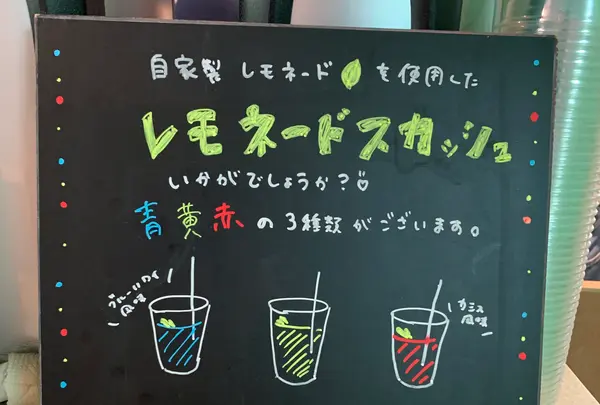 自家製 レモネード を使用した
レモネードスカッシュ
いかがでしょうか?♡
青 黄 赤 の 3種類 がございます。
ブルーハワイ
風味
カシス
風味